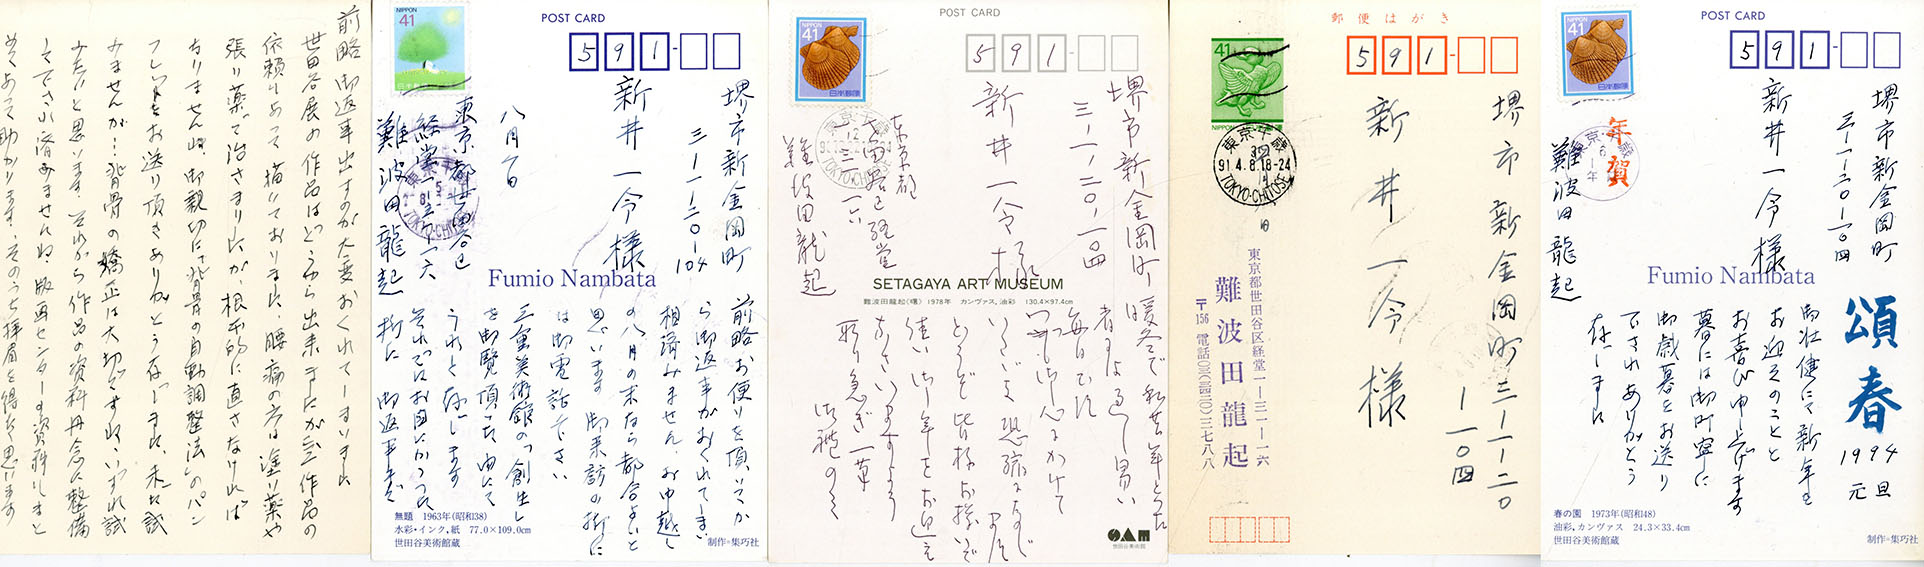 前略 御返事出すのが大変おくれてしまいました
世田谷展の作品はどうやら出来ましたが
依頼もあって描いております。腰痛の方は塗り薬や
張り薬で治さまりましたが、根本的に直さなければ
なりませんね、御親切にて背骨の自動調整法のパン
フレットをお送り頂きありがとう存じました、未だ試
みませんが…背骨の矯正は大切ですね、いづれ試
みたいと思います。それから作品の資料丹念に整備
して下さり済みませんね、版画センターの資料もまと
めてあって助かります、そのうち拝眉を得たく思います
NIPPON
41
日本郵便
POST CARD
591-
堺市新金岡町
三-一-二〇-104
新井一令様
八月一日
東京都世田谷区
経堂一-三一-一六
難波田龍起
Fumio Nambata
前略 お便りを頂いてか
ら御返事がおくれてしまい
相済みません、お申越し
の八月の末なら都合よいと
思います 御来訪の折に
は御電話下さい
三重美術館の「創生」
を御覧頂きた由にて
うれしく存じます
それではお目にかかった
折に 御返事まで
無題 1963年(昭和38)
水彩・インク、紙 77.0×109.0cm
世田谷美術館蔵
制作=集巧社
POST CARD
NIPPON
41
日本郵便
591-
堺市新金岡町
三-一-二〇-一〇四
新井一令様
東京都
世田谷区経堂
一-三一-一六
難波田龍起
SETAGAYA ART MUSEUM
難波田龍起《曙》 1978年 カンヴァス、油彩 130.4×97.4cm
暖冬で私共年とった
者には過し易い
毎日です
いつもお心にかけて
下さいま
どうぞ皆様お揃いで
佳い御年をお迎え
なさいますよう
取り急ぎ一筆
御礼のみ
SAM
世田谷美術館
郵便はがき
41
NIPPON
東京千歳
91.4.8.18-24
TOKYO-CHITOSE
591-
堺市新金岡町三-一-二〇
-一〇四
新井一令様
東京都世田谷区経堂一-三一-一六
難波田龍起
〒156 電話(〇三)(三四二〇)三七八八
POST CARD
NIPPON
41
日本郵便
年賀
591-
堺市新金岡町
三-一-二〇-一〇四
新井一令様
難波田龍起
Fumio Nambata
頌春
1994
元旦
御壮健にて新年を
お迎えのことと
お喜び申上げます
暮には御町寧に
御歳暮をお送り
下されありがとう
存じました
春の園 1973年(昭和48)
油彩、カンヴァス 24.3×33.4cm
世田谷美術館蔵
制作=集巧社